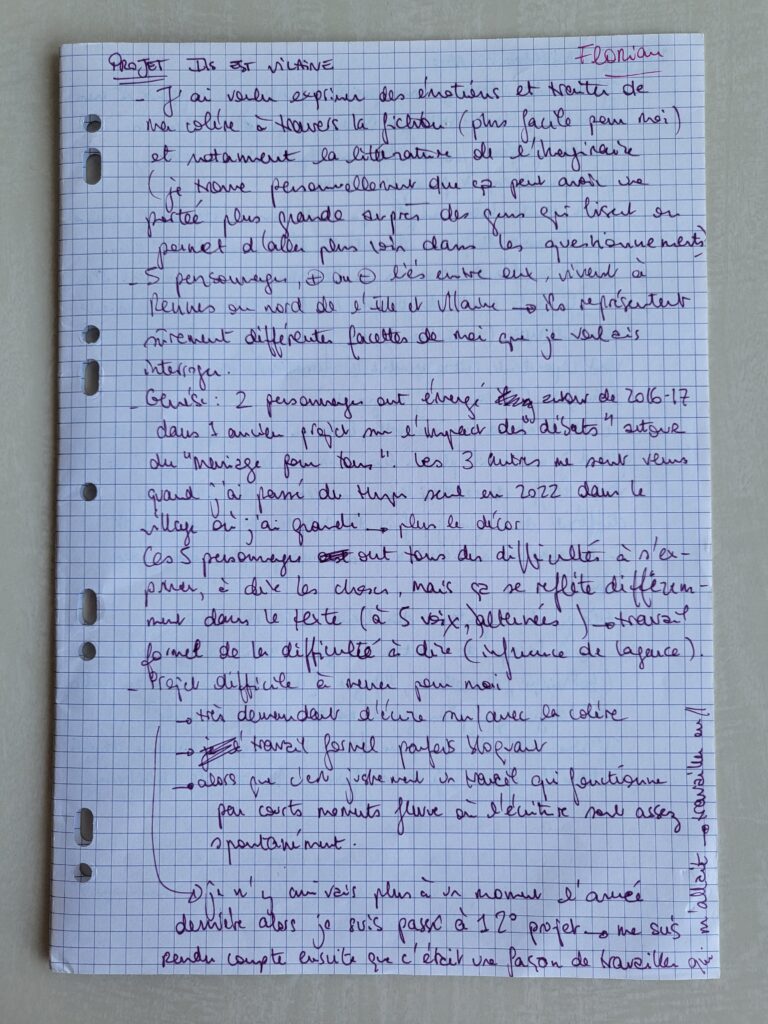 PROJET ILS EST VILAINE
Florian
- J'ai voulu exprimer des émotions et traiter de
ma colère à travers la fiction (plus facile pour moi)
et notamment la littérature de l'imaginaire
(je trouve personnellement que ça peut avoir une
portée plus grande auprès des gens qui lisent ou
permet d'aller plus loin dans les questionnements
- 5 personnages, ⊕ ou ⊖ liés entre eux, vivent à
Rennes ou nord de l'Ille et Vilaine → ils représentent
sûrement différentes facettes de moi que je voulais
interroger.
- Genèse : 2 personnages ont émergé autour de 2016-17
dans 1 ancien projet sur l'impact des "débats" autour
du "mariage pour tous". Les 3 autres me sont venus
quand j'ai passé du temps seul en 2022 dans le
village où j'ai grandi → plus le décor
Ces 5 personnages ont tous des difficultés à s'ex-
primer, à dire les choses, mais ça se reflète différem-
ment dans le texte (à 5 voix, alternées) → travail
formel de la difficulté à dire (influence de Lagarce).
- Projet difficile à mener pour moi
→ très demandant d'écrire sur/avec la colère
→ travail formel parfois bloquant
→ alors que c'est justement un travail qui fonctionne
par courts moments où l'écriture sort assez
spontanément.
→ je n'y arrivais plus à un moment l'année
dernière alors je suis passé à 1 2° projet → me suis
rendu compte ensuite que c'était une façon de travailler qui
m'allait → travailler sur